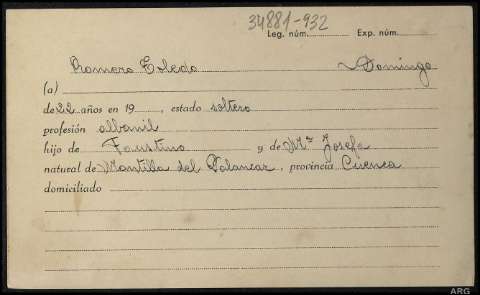 34881-932
Leg. núm. Exp. núm.
Romero Toledo Domingo
(a)
de 22 años en 19 , estado soltero
profesión albanil
hijo de Faustino y de Mª Josefa
natural de Mantilla del Palancar, provincia Cuenca
domiciliado
ARG